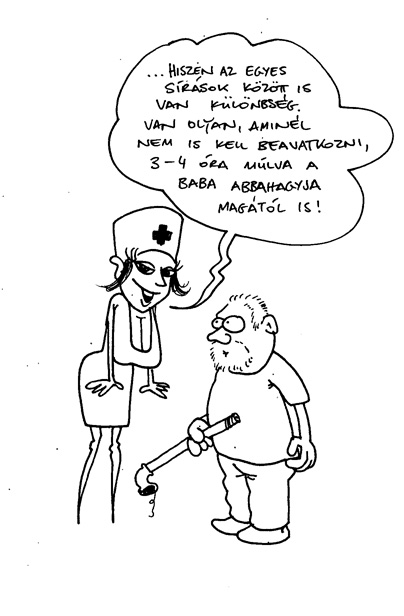 ...HISZEN AZ EGYES
SÍRÁSOK KÖZÖT IS
VAN KÜLÖNBSÉG.
VAN OLYAN, AMINÉL
NEM IS KELL BEAVATKOZNI,
3-4 ÓRA MÚLVA A
BABA ABBAHAGYJA
MAGÁTÓL IS!